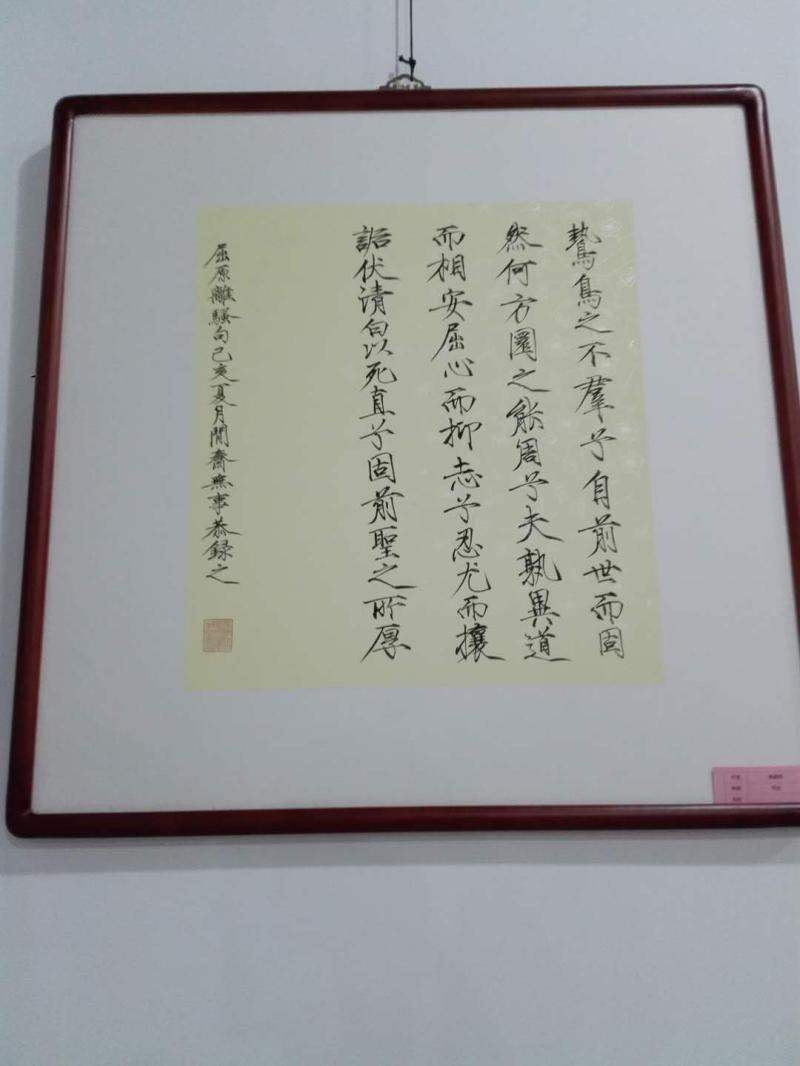 鷙鳥之不羣兮自前世而固
然何方圜之能周兮夫孰異道
而相安屈心而抑志兮忍尤而攘
詬伏清白以死直兮固前聖之所厚
屈原離騷句己亥夏月閒齋無事恭録之